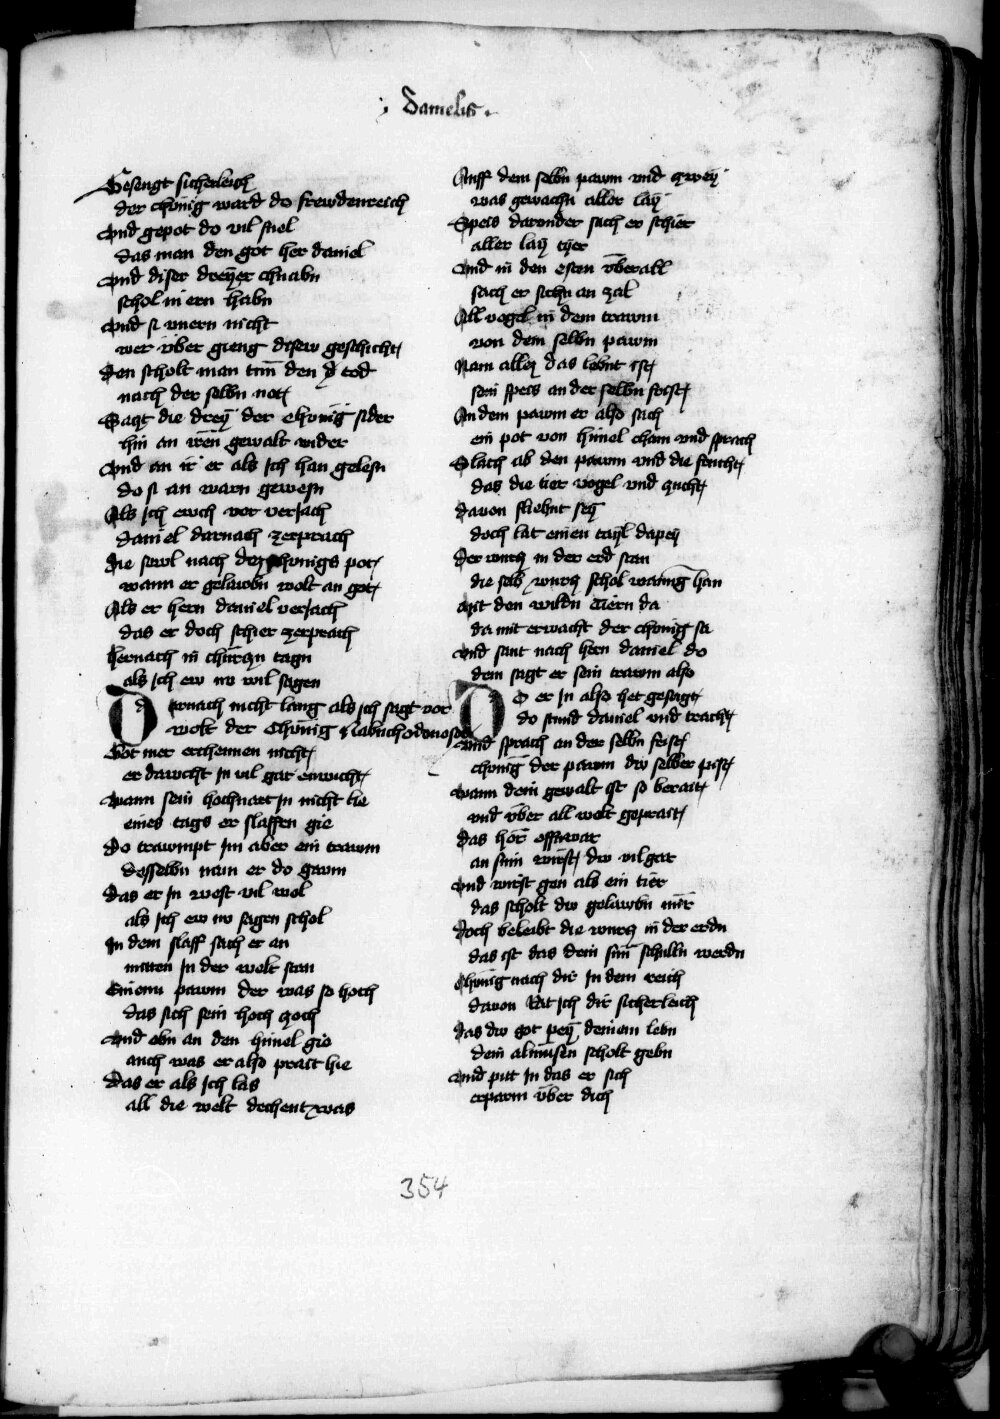 Danielis
Besengt sicherleich
der chönig ward do frewdenreich
Vnd gepot do vil snel
das man den got her daniel
Vnd diser dreyer chnabn
schol in ern habn
Vnd si vnern nicht
wer vber gieng disew geschicht
Den scholt man tun den tod
nach der selbn not
Sagt die drey der chönig sider
hin an iren gewalt wider
Vnd an ir er als ich han gelesn
do si an warn gewesn
Als ich ewch vor veriach
daniel darnach zerprach
Die sewl nach des chönigs pot
wann er gelawbn wolt an got
Als er hern daniel veriach
das er doch schier zerprach
Hernach in churczn tagn
als ich ew no wil sagen
Dernach nicht lang als ich sagt vor
wolt der Chönig Nabuchodonosor
Got mer erchennen nicht
er dawcht in vil gar enwicht
Wann sein hochuart in nicht lie
eines tags er slaffen gie
Do trawmpt im aber ein trawm
desselbn man er do gawm
Das er in west vil wol
als ich ew no sagen schol
In dem slaff sach er an
mitten in der welt stan
Einenn pawm der was so hoch
das sich sein hoch zoch
Vnd ebn an den himel gie
auch was er also prait hie
Das er als ich las
all die welt dechent was
Auff dem selbn pawm vnd zwey
was gewachn aller lay
Speis darunder sach er schier
aller lay tyer
Vnd in den esten vberall
sach er siczn an zal
All vogel in dem trawm
von dem selbn pawm
Nam allez das lebnt ist
sein speis an der selbn frist
An dem pawm er also sach
ein pot von himel cham vnd sprach
Slach ab den pawm vnd die frucht
das die tier vogel vnd zucht
Dauon fliehnt sey
doch lat einen tayl dapey
Der wurcz in der erd stan
die selb wurcz schol wanung han
Mit den wildn tiern da
da mit erwacht der chönig sa
Vnd sant nach hern daniel do
dem sagt er sein trawm also
Do er in also het gesagt
do stund daniel vnd tracht
Vnd sprach an der selbn frist
chönig der pawm dw selber pist
Wann dein gewalt ist so berait
vnd vber all welt geprait
Das hör offnwar
an sinn wirst dw vil gar
Vnd wirst gen als ein tier
das scholt dw gelawbn mir
Doch beleibt die wurcz in der erdn
das ist das dein sun schulln werdn
Chönig nach dir in dem reich
dauon rat ich dir sicherleich
Das dw got pey deinem lebn
dein almusen scholt gebn
Vnd pitt in das er sich
erparm vber dich
354